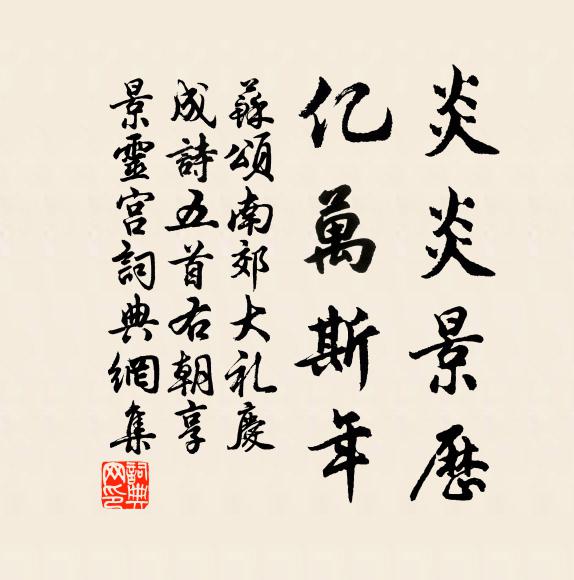 炎炎景歷
亿萬斯年
蘇頌南郊大礼慶
成詩五首右朝享
景靈宫詞典網集
詞典網印